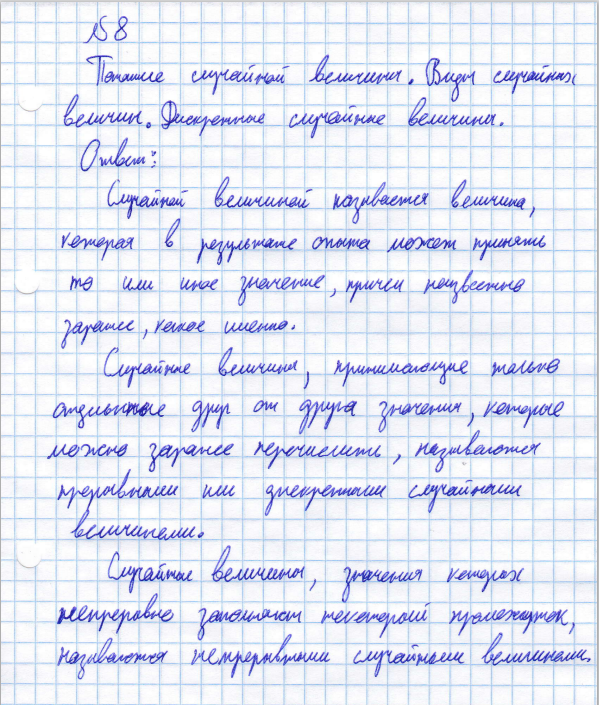 №8
Понятие случайной величины. Виды случайных
величин. Дискретные случайные величины.
Ответ:
Случайной величиной называется величина,
которая в результате опыта может принять
то или иное значение, причем неизвестно
заранее, какое именно.
Случайные величины, принимающие только
отдельные друг от друга значения, которые
можно заранее перечислить, называются
прерывными или дискретными случайными
величинами.
Случайные величины, значения которых
непрерывно заполняют некоторый промежуток,
называются непрерывными случайными величинами.